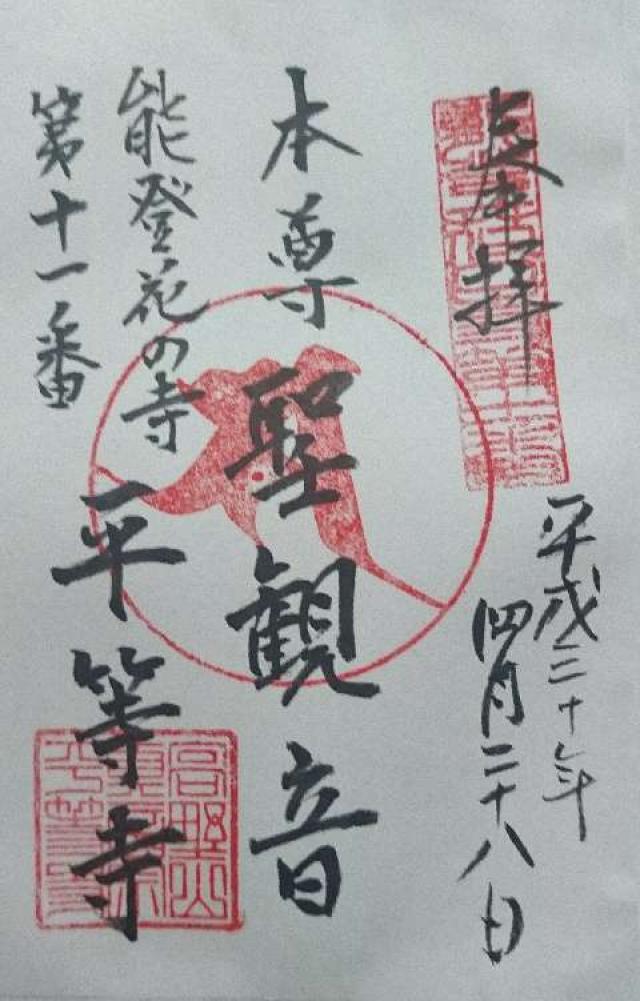 奉拝
平成三十年
四月二十八日
本尊 聖観音
能登花の寺 平等寺
第十一番